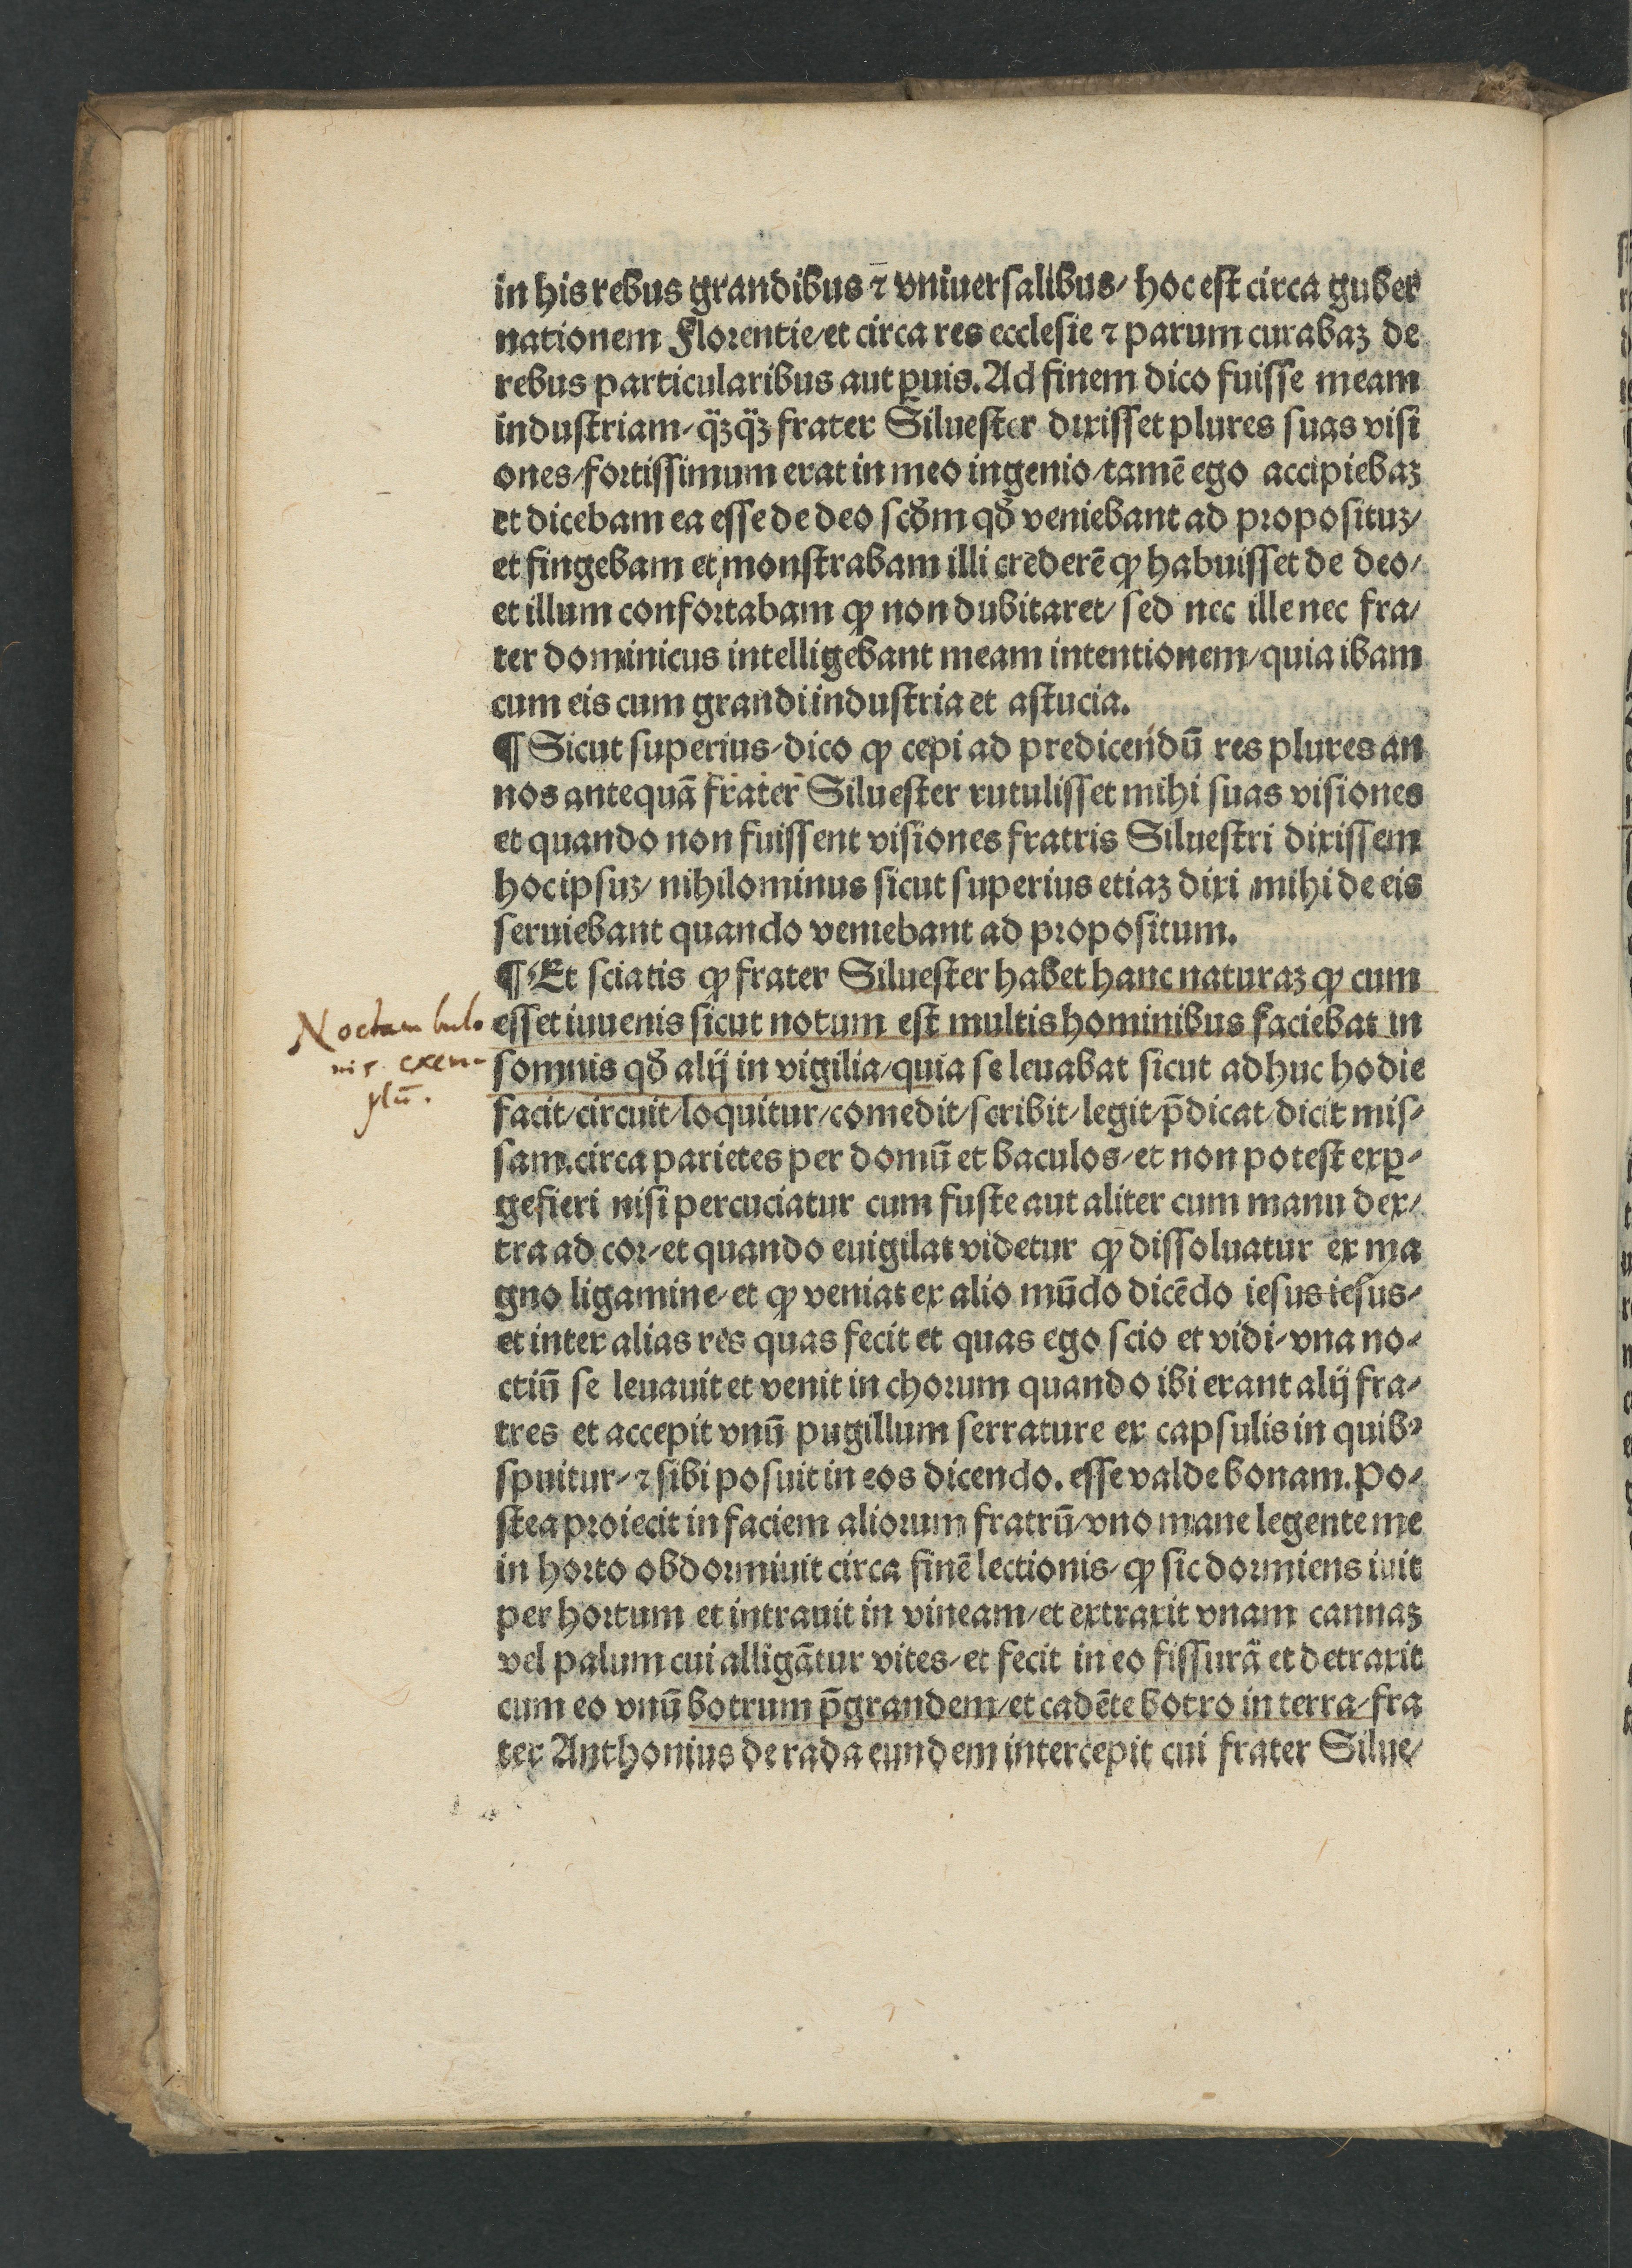 in his rebus grandibus ⁊ vniuersalibus/ hoc est circa guber
nationem Florentie/et circa res ecclesie ⁊ parum curabaꝫ de
rebus particularibus aut ꝑuis. Ad finem dico fuisse meam
industriam/ qᷓꝫqᷓꝫ frater Siluester dixisset plures suas visi
ones/fortissimum erat in meo ingenio/tamē ego accipiebaꝫ
et dicebam ea esse de deo scđm qđ veniebant ad proposituꝫ/
et fingebam et monstrabam illi crederē ꝙ habuisset de deo/
et illum confortabam ꝙ non dubitaret/ sed nec ille nec fra/
ter dominicus intelligebant meam intentionem/quia ibam
cum eis cum grandi industria et astucia.
¶ Sicut superius/dico ꝙ cepi ad predicendū res plures an
nos antequā frater Siluester rutulisset mihi suas visiones
et quando non fuissent visiones fratris Siluestri dixissem
hoc ipsuꝫ/ nihilominus sicut superius etiaꝫ dixi mihi de eis
seruiebant quando veniebant ad propositum.
¶ Et sciatis ꝙ frater Siluester habet hanc naturaꝫ ꝙ cum
esset iuuenis sicut notum est multis hominibus faciebat in
somnis qđ alij in vigilia/quia se leuabat sicut adhuc hodie
facit/circuit/loquitur/comedit/scribit/legit/p̄dicat/dicit mis/
sam.circa parietes per domū et baculos/et non potest exꝑ/
gefieri nisi percuciatur cum fuste aut aliter cum manu dex/
tra ad cor/et quando euigilat videtur ꝙ dissoluatur ex ma
gno ligamine/et ꝙ veniat ex alio mūdo dicēdo iesus iesus/
et inter alias res quas fecit et quas ego scio et vidi/vna no/
ctiū se leuauit et venit in chorum quando ibi erant alij fra/
tres et accepit vnū pugillum serrature ex capsulis in quibꝰ
spuitur/⁊ sibi posuit in eos dicendo. esse valde bonam. Po/
stea proiecit in faciem aliorum fratrū/vno mane legente me
in horto obdormiuit circa finē lectionis/ꝙ sic dormiens iuit
per hortum et intrauit in vineam/et extraxit vnam cannaꝫ
vel palum cui alligātur vites/et fecit in eo fissurā et detraxit
cum eo vnū botrum p̄grandem/et cadēte botro in terra/fra
ter Anthonius de rada eundem intercepit cui frater Silue/
Noctambulo
nis exem-
plū.